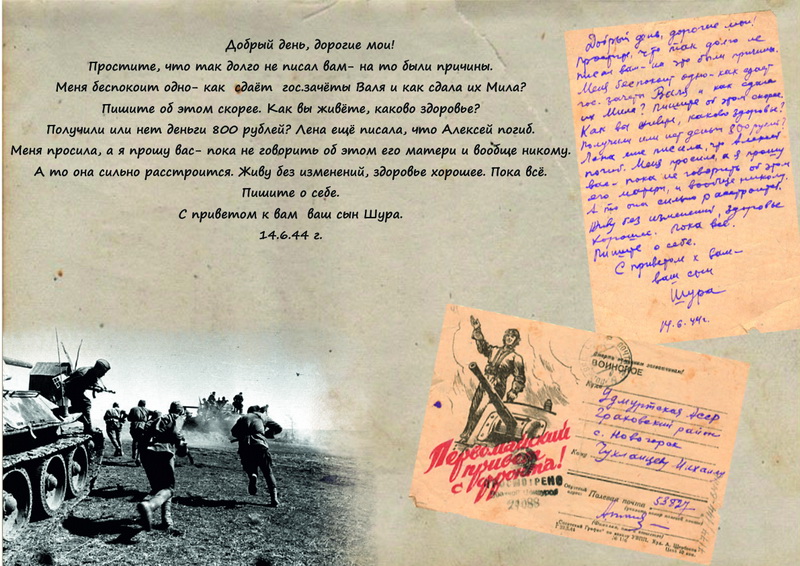 Добрый день, дорогие мои!
Простите, что так долго не писал вам- на то были причины.
Меня беспокоит одно- как сдаёт гос.зачёты Валя и как сдала их Мила?
Пишите об этом скорее. Как вы живёте, каково здоровье?
Получили или нет деньги 800 рублей? Лена ещё писала, что Алексей погиб.
Меня просила, а я прошу вас- пока не говорить об этом его матери и вообще никому.
А то она сильно расстроится. Живу без изменений, здоровье хорошее. Пока всё.
Пишите о себе.
С приветом к вам ваш сын Шура.
14.6.44 г.
Добрый день, дорогие мои!
Простите, что так долго не
писал вам- на то были причины.
Меня беспокоит одно- как сдаёт
гос. зачёты Валя и как сдала
их Мила? Пишите об этом скорее.
Как вы живёте, каково здоровье?
Получили или нет деньги 800 рублей?
Лена мне писала, что Алексей
погиб. Меня просила, а я прошу
вас- пока не говорить об этом
его матери, и вообще никому.
А то она сильно расстроится.
Живу без изменений, здоровье
хорошее. Пока всё.
Пишите о себе.
С приветом к вам-
ваш сын
Шура
14.6.44г.
ВОИНСКОЕ
Куда
Удмуртская АССР
Граховский район
с. Новогорск
Кому
Чухланцеву Михаилу
Первомайский
привет
с фронта!
24088
Полевая почта 53927